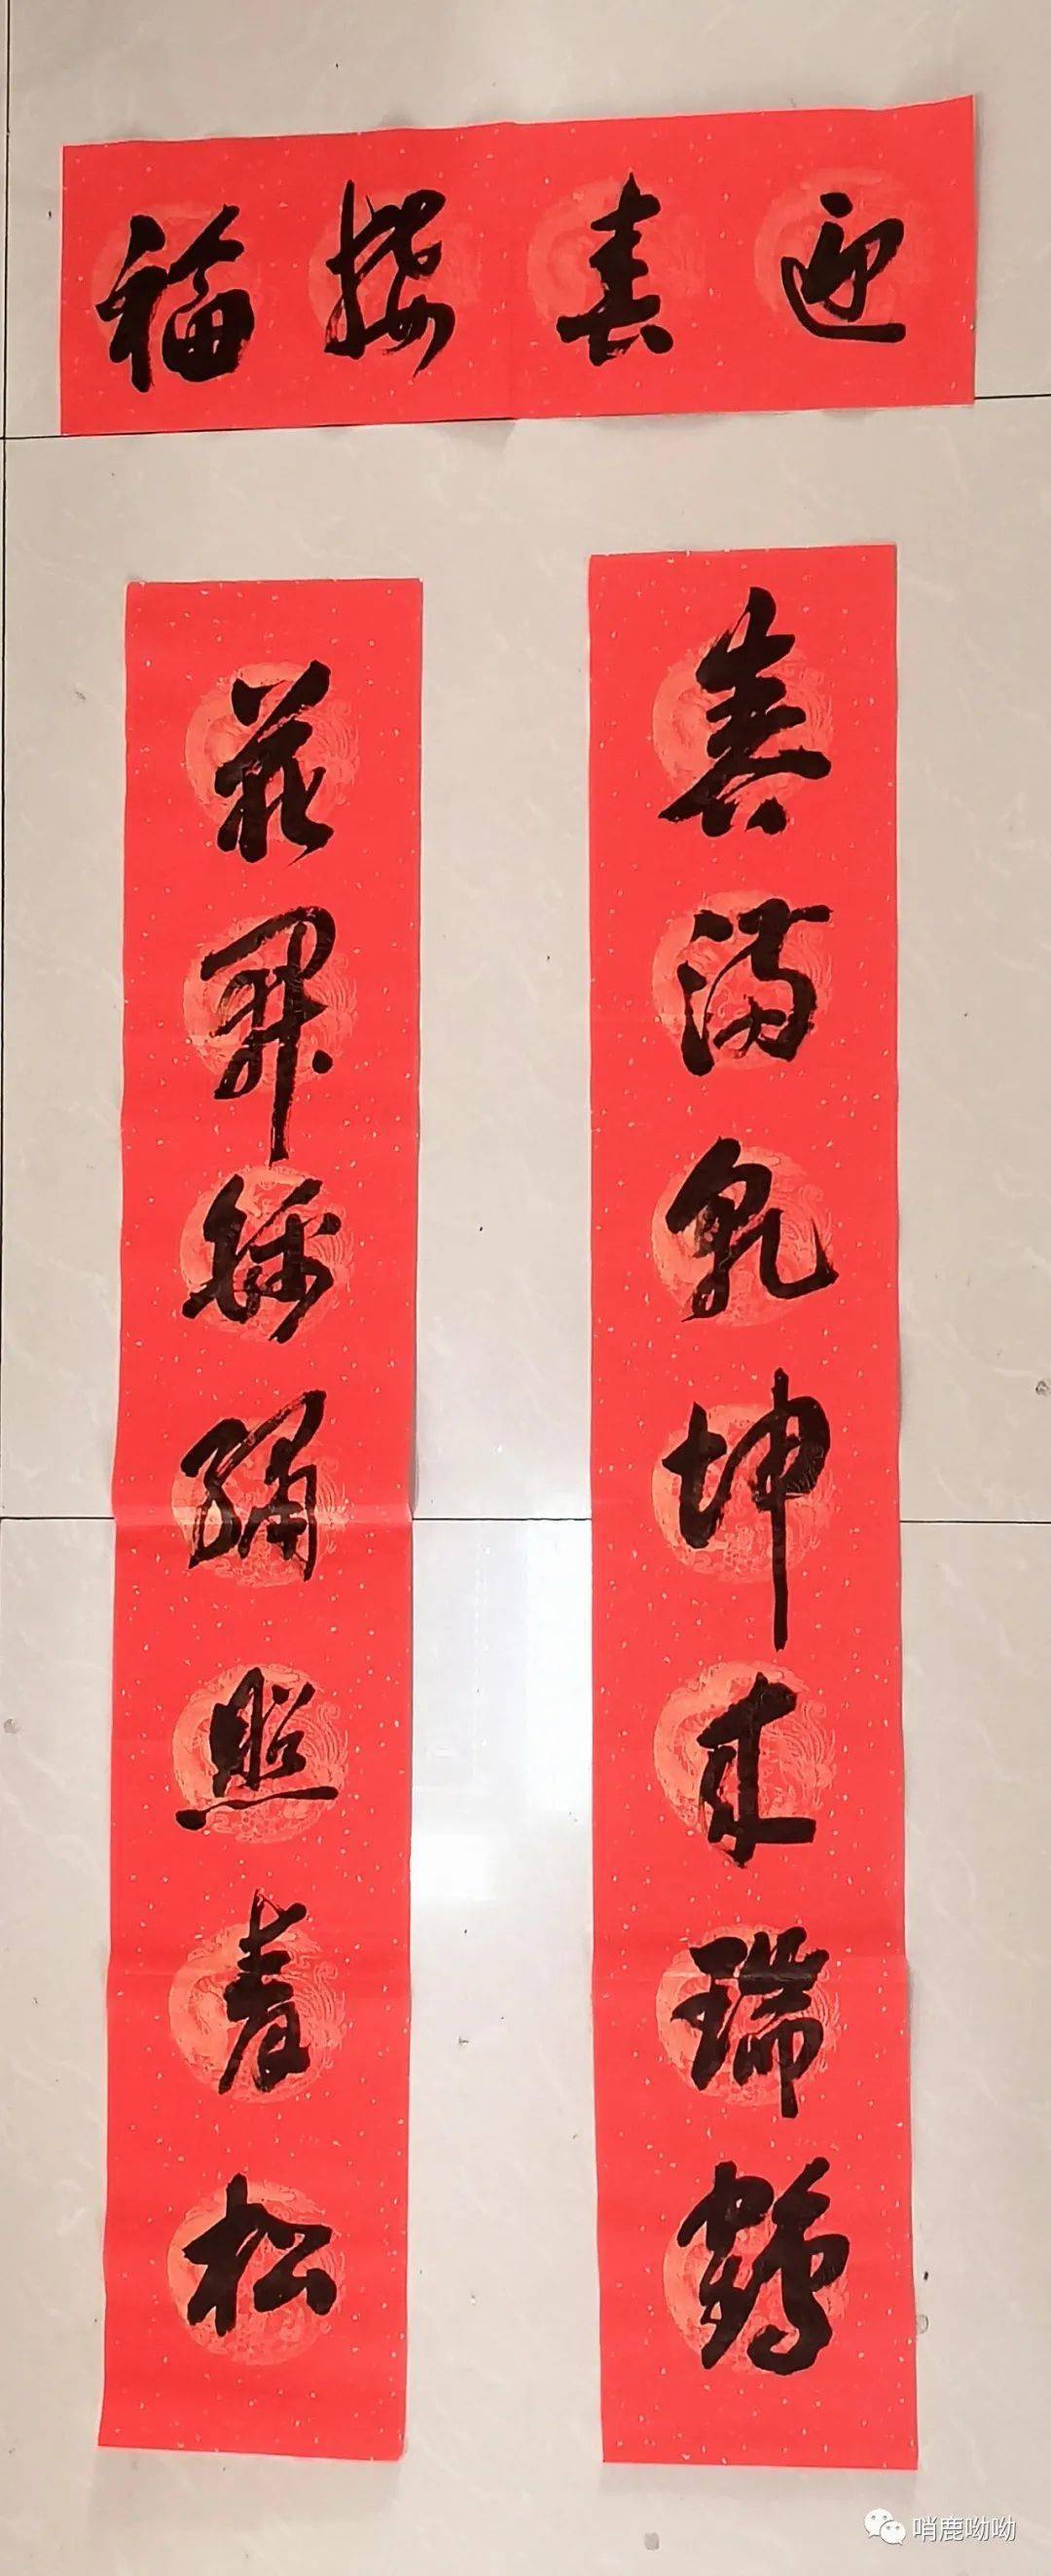 迎春接福
春满乾坤来瑞鹤
花开锦绣照青松
哨鹿呦呦